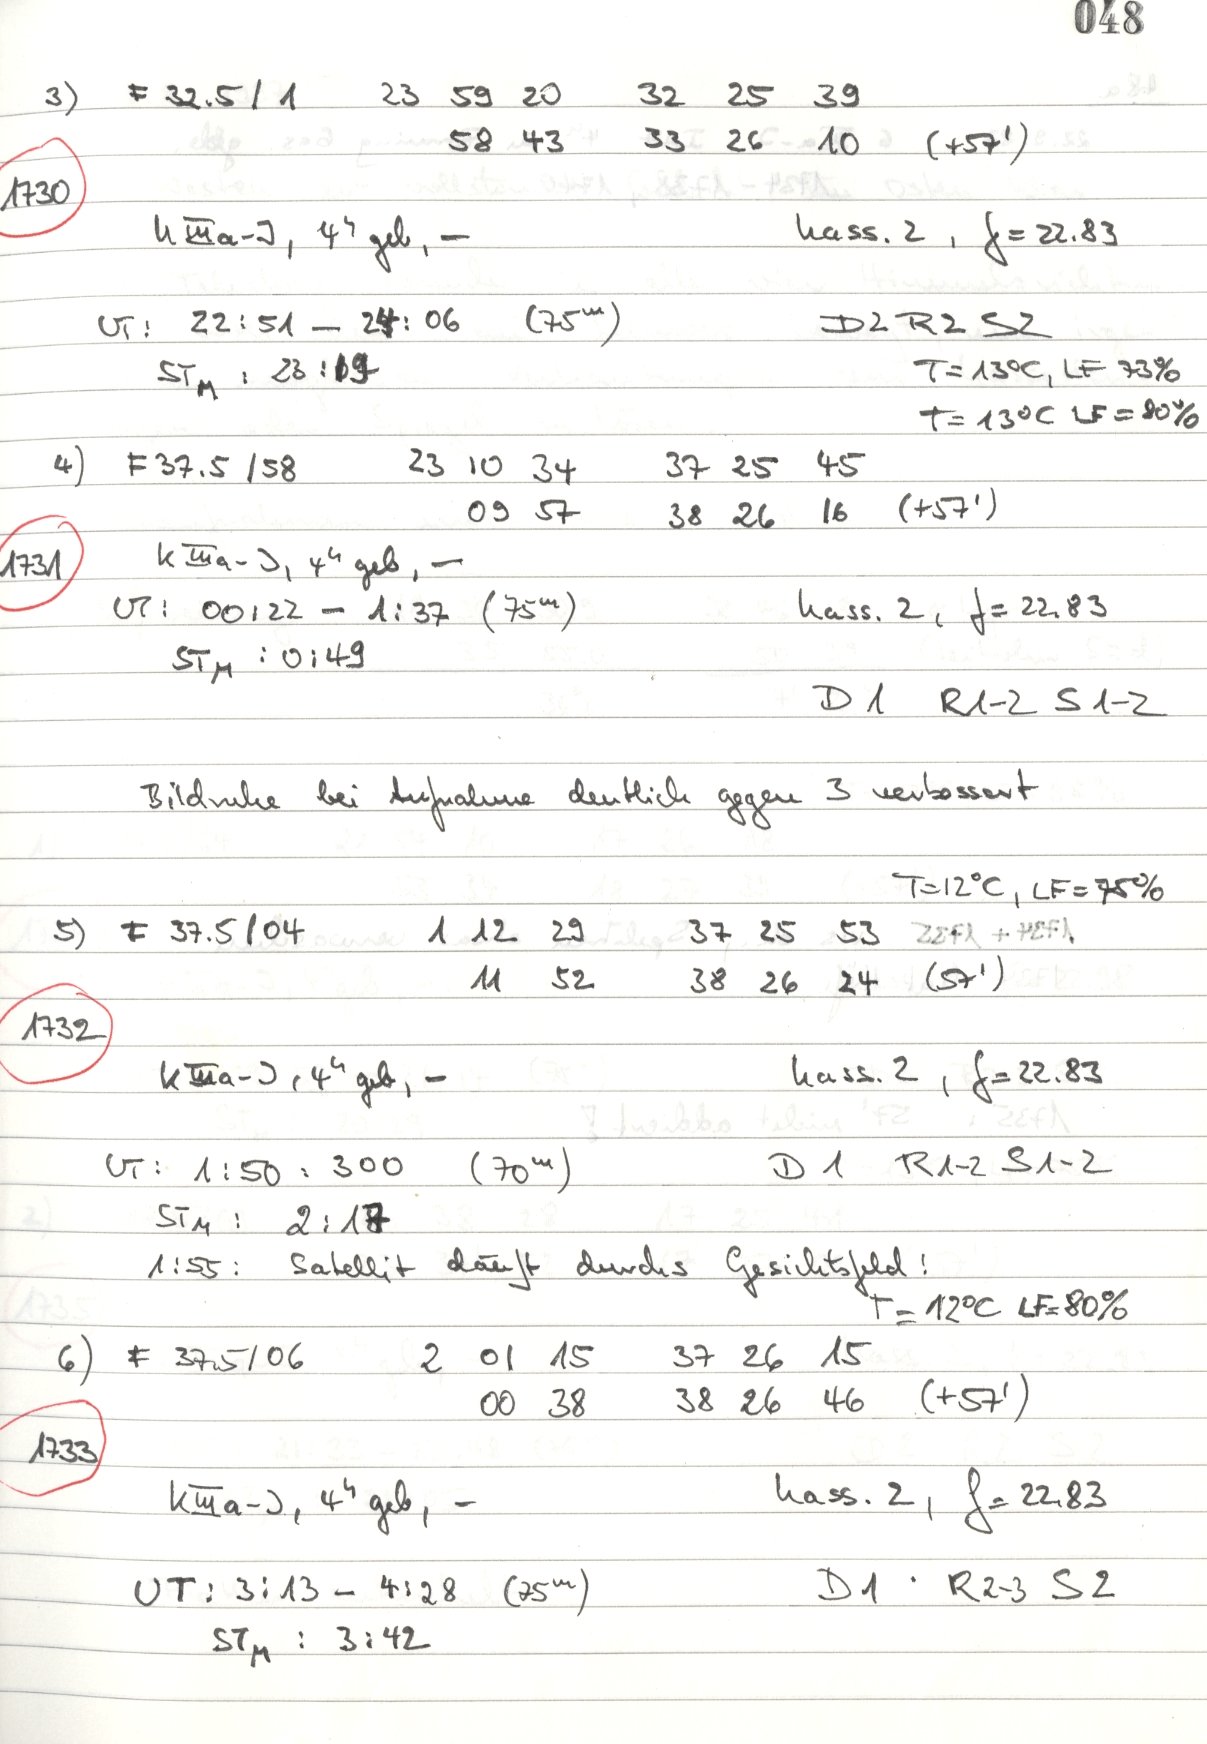 048
3) F 32.5/1 23 59 20 32 25 39
58 43 33 26 10 (+57')
1730
k IIIa-J, 4h geb, – kass. 2, f = 22.83
UT: 22:51 – 24:06 (75m) D2 R2 S2
STM: 23:19 T = 13°C, LF 73%
T = 13°C LF = 80%
4) F 37.5/58 23 10 34 37 25 45
09 57 38 26 16 (+57')
1731 k IIIa-J, 4h geb, –
UT: 00:22 – 1:37 (75m) kass. 2, f = 22.83
STM: 0:49
D1 R1-2 S1-2
Bildruhe bei Aufnahme deutlich gegen 3 verbessert
T = 12°C, LF = 75%
5) F 37.5/04 1 12 29 37 25 53
11 52 38 26 24 (57')
1732
k IIIa-J, 4h geb, – kass. 2, f = 22.83
UT: 1:50 : 300 (70m) D1 R1-2 S1-2
STM: 2:17
1:55: Satellit läuft durchs Gesichtsfeld!
T = 12°C LF = 80%
6) F 37.5/06 2 01 15 37 26 15
00 38 38 26 46 (+57')
1733
k IIIa-J, 4h geb, – kass. 2, f = 22.83
UT: 3:13 – 4:28 (75m) D1 · R2-3 S2
STM: 3:42